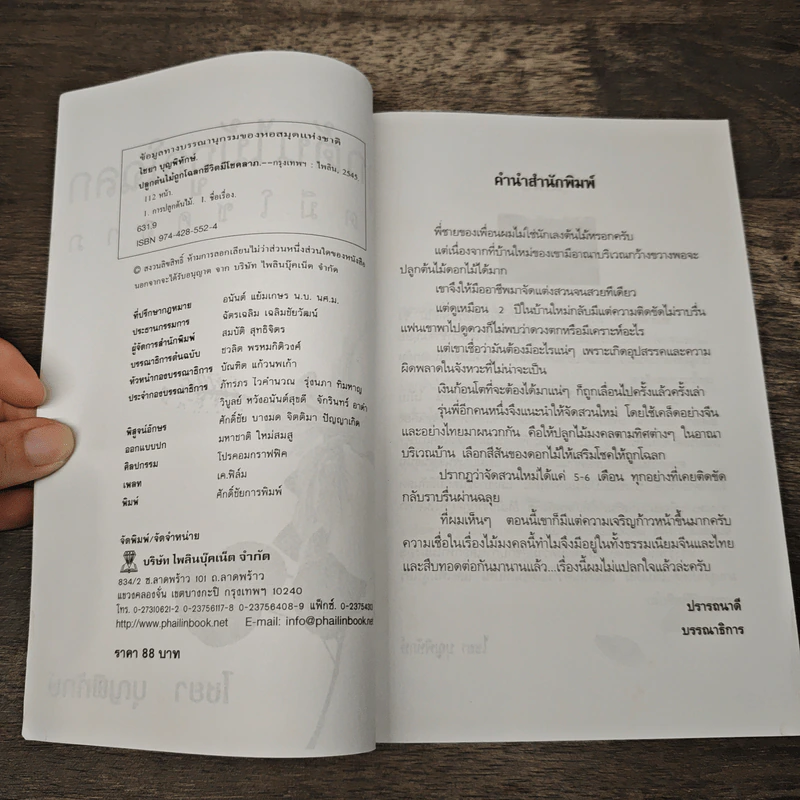 ข้อมูลทางบรรณานุกรมของหอสมุดแห่งชาติ
ไชยา บุญพิทักษ์.
ปลูกต้นไม้ถูกโฉลกชีวิตมีโชคลาภ.--กรุงเทพฯ : ไพลิน, 2545.
112 หน้า.
1. การปลูกต้นไม้. I. ชื่อเรื่อง.
631.9
ISBN 974-428-552-4
© สงวนลิขสิทธิ์ ห้ามการลอกเลียนไม่ว่าส่วนหนึ่งส่วนใดของหนังสือ
นอกจากจะได้รับอนุญาต จาก บริษัท ไพลินบุ๊คเน็ต จำกัด
ที่ปรึกษากฎหมาย อนันต์ แย้มเกษร น.บ. นศ.ม.
ประธานกรรมการ ฉัตรเฉลิม เฉลิมชัยวัฒน์
ผู้จัดการสำนักพิมพ์ สมบัติ สุทธิจิตร
บรรณาธิการต้นฉบับ ชวลิต พรหมกิติวงศ์
หัวหน้ากองบรรณาธิการ บัณฑิต แก้วนพเก้า
ประจำกองบรรณาธิการ ภัทรภร ไวคำนวณ รุ่งนภา ทิมหาญ
วิบูลย์ หวังอนันต์สุขดี จักรินทร์ อาดำ
พิสูจน์อักษร ศักดิ์ชัย บางมด จิตติมา ปัญญาเกิด
ออกแบบปก มหาชาติ ใหม่สมสู
ศิลปกรรม โปรคอมกราฟฟิค
เพลท เค.ฟิล์ม
พิมพ์ ศักดิ์ชัยการพิมพ์
จัดพิมพ์/จัดจำหน่าย
บริษัท ไพลินบุ๊คเน็ต จำกัด
834/2 ซ.ลาดพร้าว 101 ถ.ลาดพร้าว
แขวงคลองจั่น เขตบางกะปิ กรุงเทพฯ 10240
โทร. 0-27310621-2 0-23756117-8 0-23756408-9 แฟ็กซ์. 0-2375430
http://www.phailinbook.net E-mail: info@phailinbook.net
ราคา 88 บาท
คำนำสำนักพิมพ์
พี่ชายของเพื่อนผมไม่ใช่นักเลงต้นไม้หรอกครับ
แต่เนื่องจากที่บ้านใหม่ของเขามีอาณาบริเวณกว้างขวางพอจะ
ปลูกต้นไม้ดอกไม้ได้มาก
เขาจึงให้มืออาชีพมาจัดแต่งสวนจนสวยทีเดียว
แต่ดูเหมือน 2 ปีในบ้านใหม่กลับมีแต่ความติดขัดไม่ราบรื่น
แฟนเขาพาไปดูดวงก็ไม่พบว่าดวงตกหรือมีเคราะห์อะไร
แต่เขาเชื่อว่ามันต้องมีอะไรแน่ๆ เพราะเกิดอุปสรรคและความ
ผิดพลาดในจังหวะที่ไม่น่าจะเป็น
เงินก้อนโตที่จะต้องได้มาแน่ๆ ก็ถูกเลื่อนไปครั้งแล้วครั้งเล่า
รุ่นพี่อีกคนหนึ่งจึงแนะนำให้จัดสวนใหม่ โดยใช้เคล็ดอย่างจีน
และอย่างไทยมาผนวกกัน คือให้ปลูกไม้มงคลตามทิศต่างๆ ในอาณา
บริเวณบ้าน เลือกสีสันของดอกไม้ให้เสริมโชคให้ถูกโฉลก
ปรากฏว่าจัดสวนใหม่ได้แค่ 5-6 เดือน ทุกอย่างที่เคยติดขัด
กลับราบรื่นผ่านฉลุย
ที่ผมเห็นๆ ตอนนี้เขาก็มีแต่ความเจริญก้าวหน้าขึ้นมากครับ
ความเชื่อในเรื่องไม้มงคลนี้ทำไมจึงมีอยู่ในทั้งธรรมเนียมจีนและไทย
และสืบทอดต่อกันมานานแล้ว...เรื่องนี้ผมไม่แปลกใจแล้วล่ะครับ
ปรารถนาดี
บรรณาธิการ